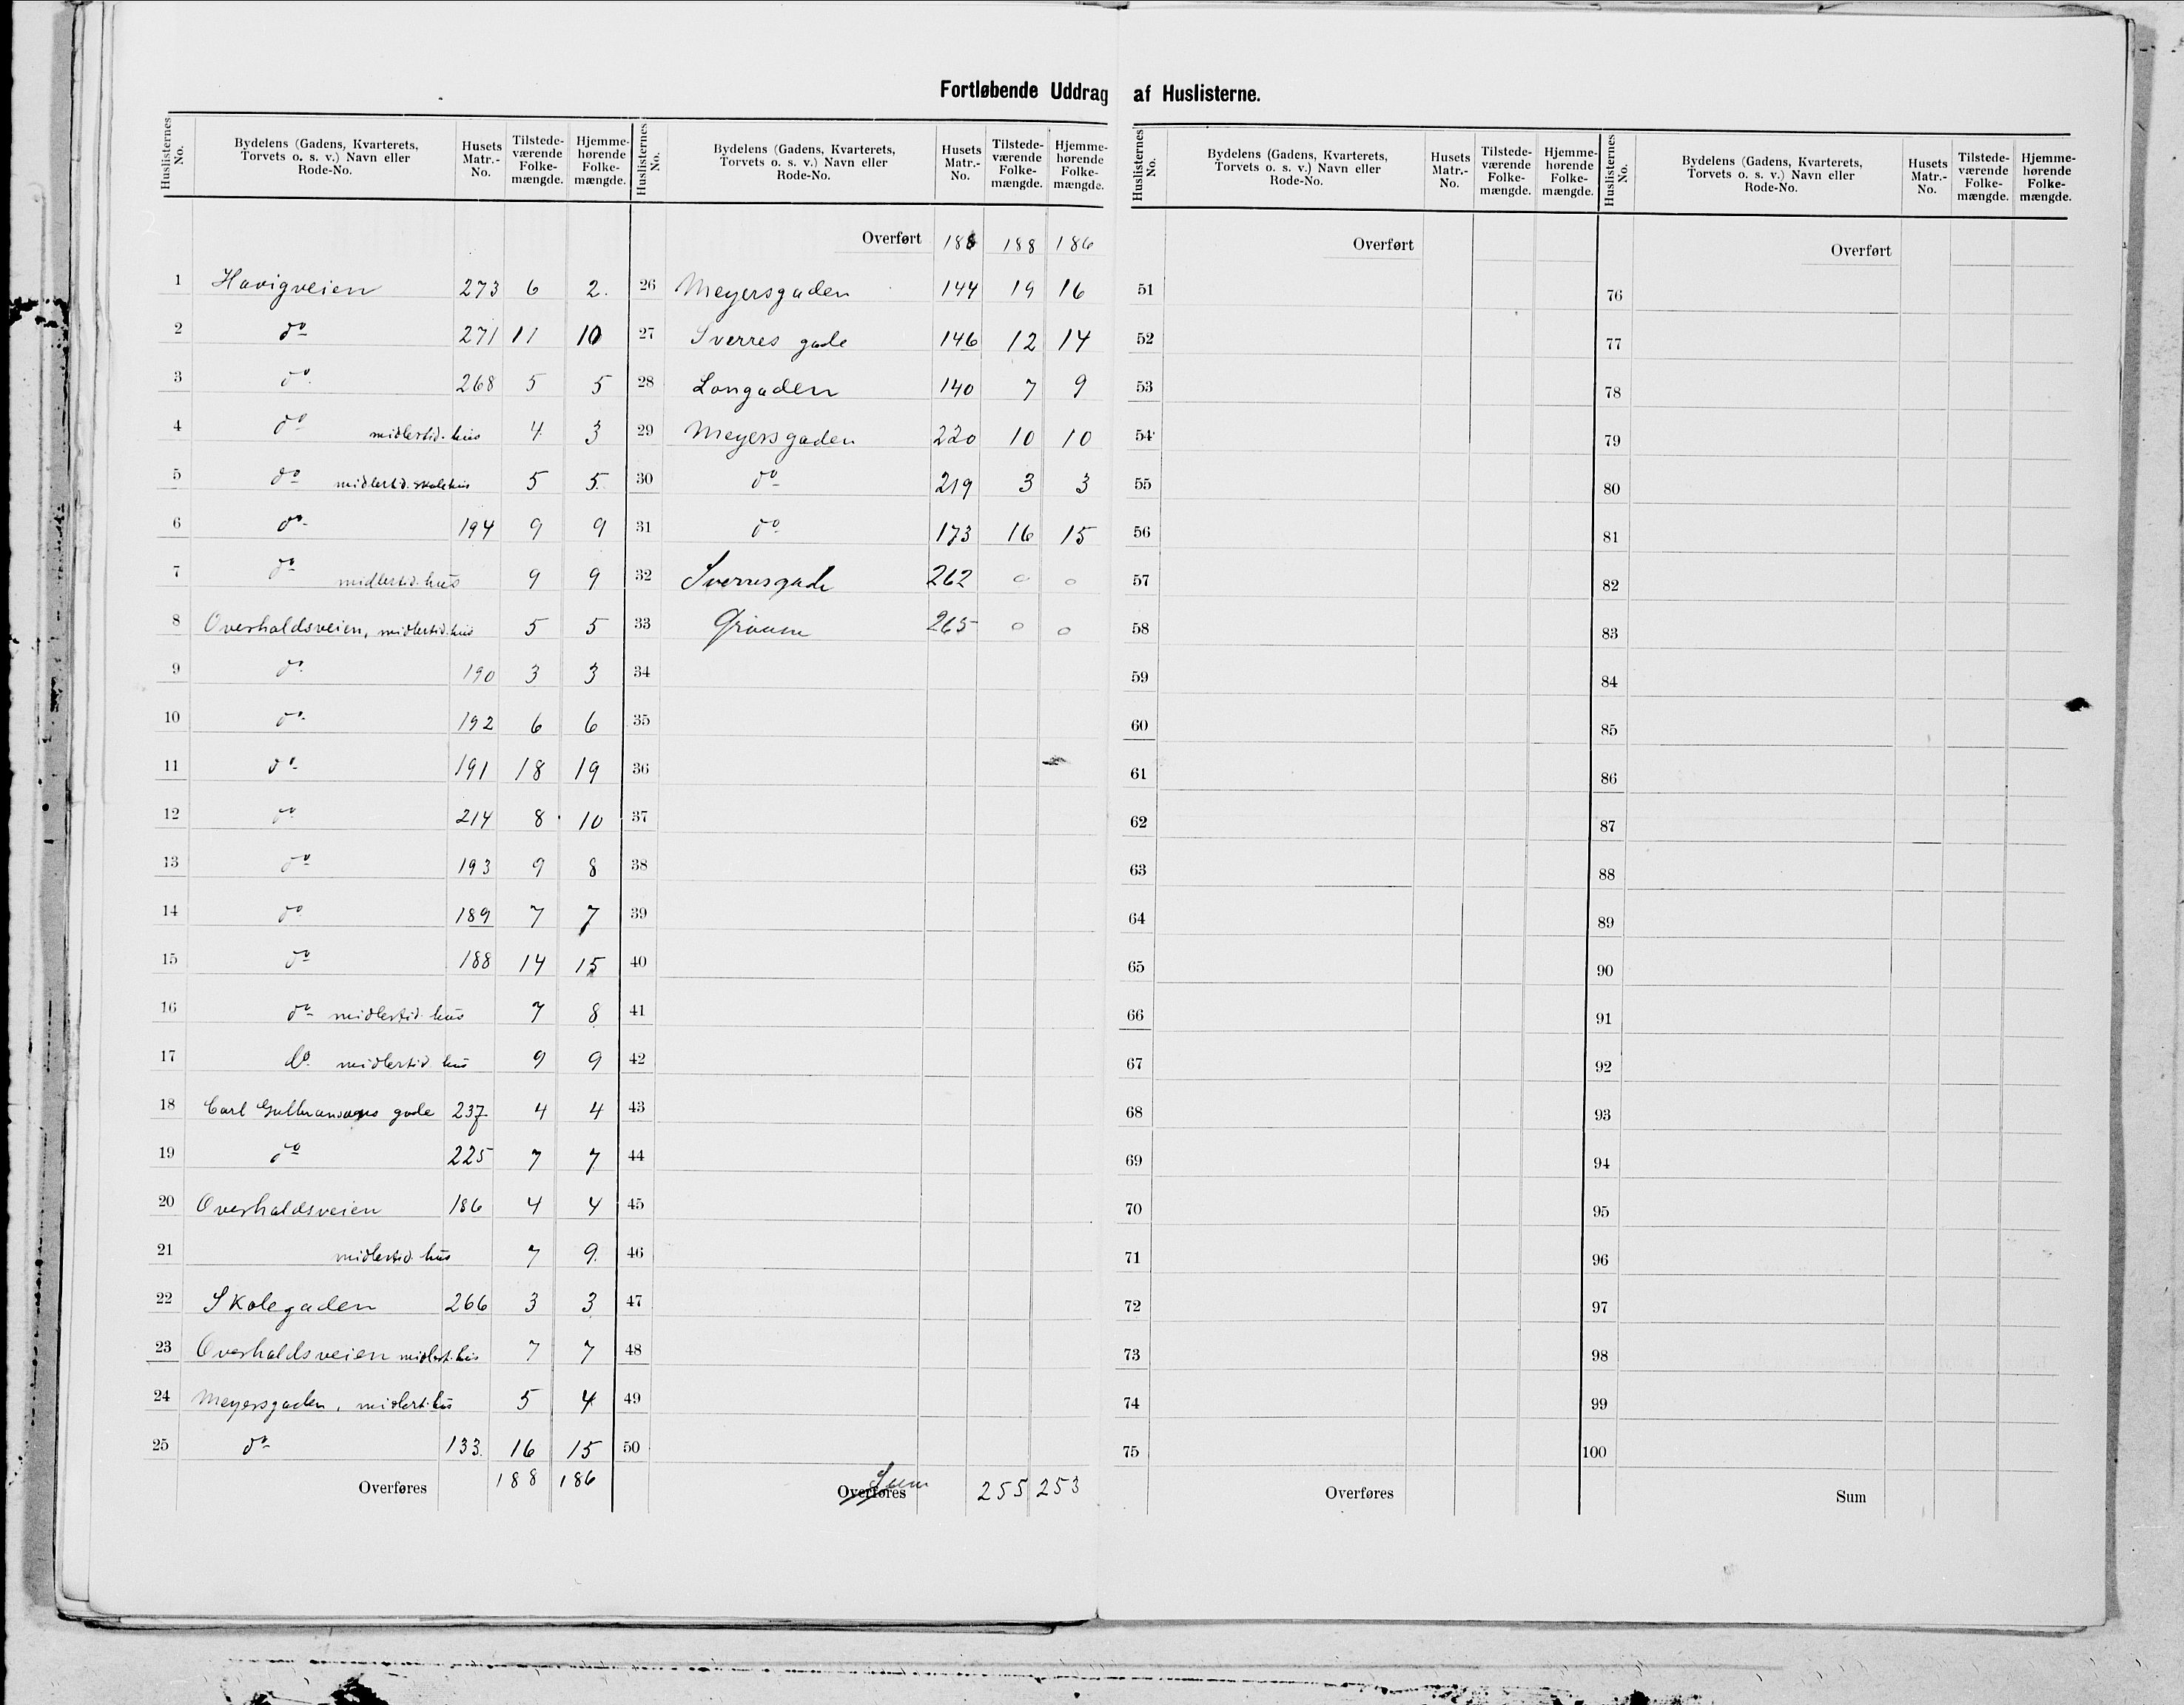 Fortløbende Uddrag af Huslisterne.
Huslisternes No. Bydelens (Gadens, Kvarterets, Torvets o. s. v.) Navn eller Rode-No. Husets Matr.-No. Tilstedeværende Folkemængde. Hjemmehørende Folkemængde.
1 Havigveien 273 6 2.
2 do 271 11 10
3 do. 268 5 5
4 do midlertid. hus 4 3
5 do midlertid. skolehus 5 5
6 do 194 9 9
7 do midlertid. hus 9 9
8 Overhaldsveien, midlertid. hus 5 5
9 do. 190 3 3
10 do. 192 6 6
11 do. 191 18 19
12 do 214 8 10
13 do 193 9 8
14 do 189 7 7
15 do 188 14 15
16 do midlertid. hus 7 8
17 do. midlertid. hus 9 9
18 Carl gade 237 4 4
19 do 225 7 7
20 Overhaldsveien 186 4 4
21 midlertid. hus 7 9.
22 Skolegaden 266 3 3
23 Overhaldsveien midlert. hus 7 7
24 Meyersgaden, midlert. hus 5 4
25 do 133. 16 15
Overføres 188 186
Huslisternes No. Bydelens (Gadens, Kvarterets, Torvets o. s. v.) Navn eller Rode-No. Husets Matr.-No. Tilstedeværende Folkemængde. Hjemmehørende Folkemængde.
Overført 188 188 186
26 Meyersgaden 144 19 16
27 Sverres gade 146 12 14
28 Longaden 140 7 9
29 Meyersgaden 220 10 10
30 do 219 3 3
31 do 173 16 15
32 Sverresgade 262 0 0
33 265 0 0
34
35
36
37
38
39
40
41
42
43
44
45
46
47
48
49
50
Overføres Sum 255 253
Huslisternes No. Bydelens (Gadens, Kvarterets, Torvets o. s. v.) Navn eller Rode-No. Husets Matr.-No. Tilstedeværende Folkemængde. Hjemmehørende Folkemængde.
Overført
51
52
53
54
55
56
57
58
59
60
61
62
63
64
65
66
67
68
69
70
71
72
73
74
75
Overføres
Huslisternes No. Bydelens (Gadens, Kvarterets, Torvets o. s. v.) Navn eller Rode-No. Husets Matr.-No. Tilstedeværende Folkemængde. Hjemmehørende Folkemængde.
Overført
76
77
78
79
80
81
82
83
84
85
86
87
88
89
90
91
92
93
94
95
96
97
98
99
100
Sum